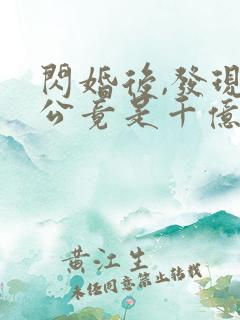 閃婚後,發現
公竟是千億
黄江生
未经同意禁止转载